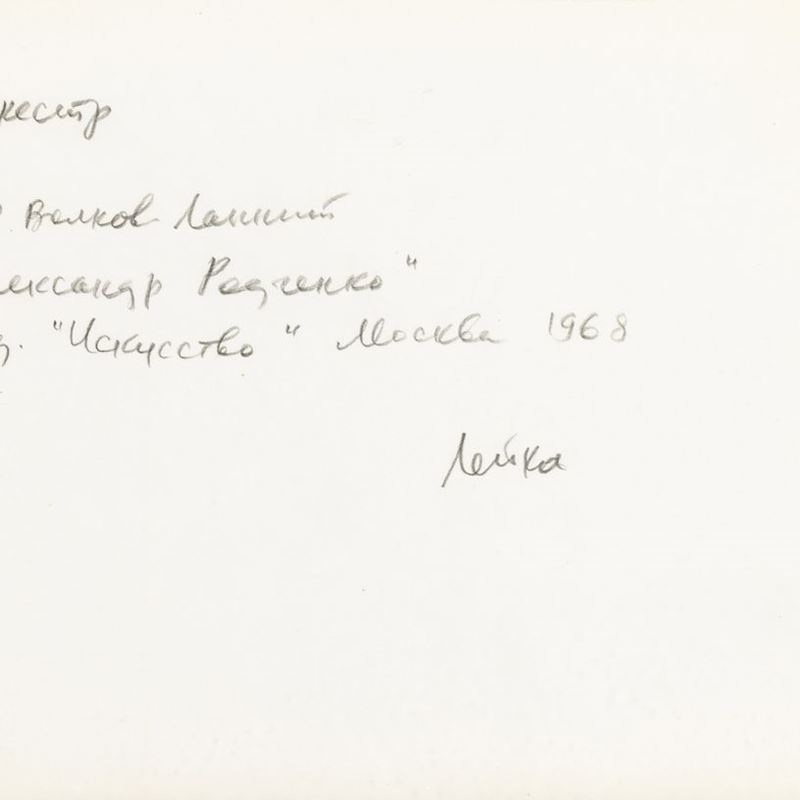 кестр
Волков Ланнит
лександр Родченко"
. "Искусство" Москва 1968
Лейка